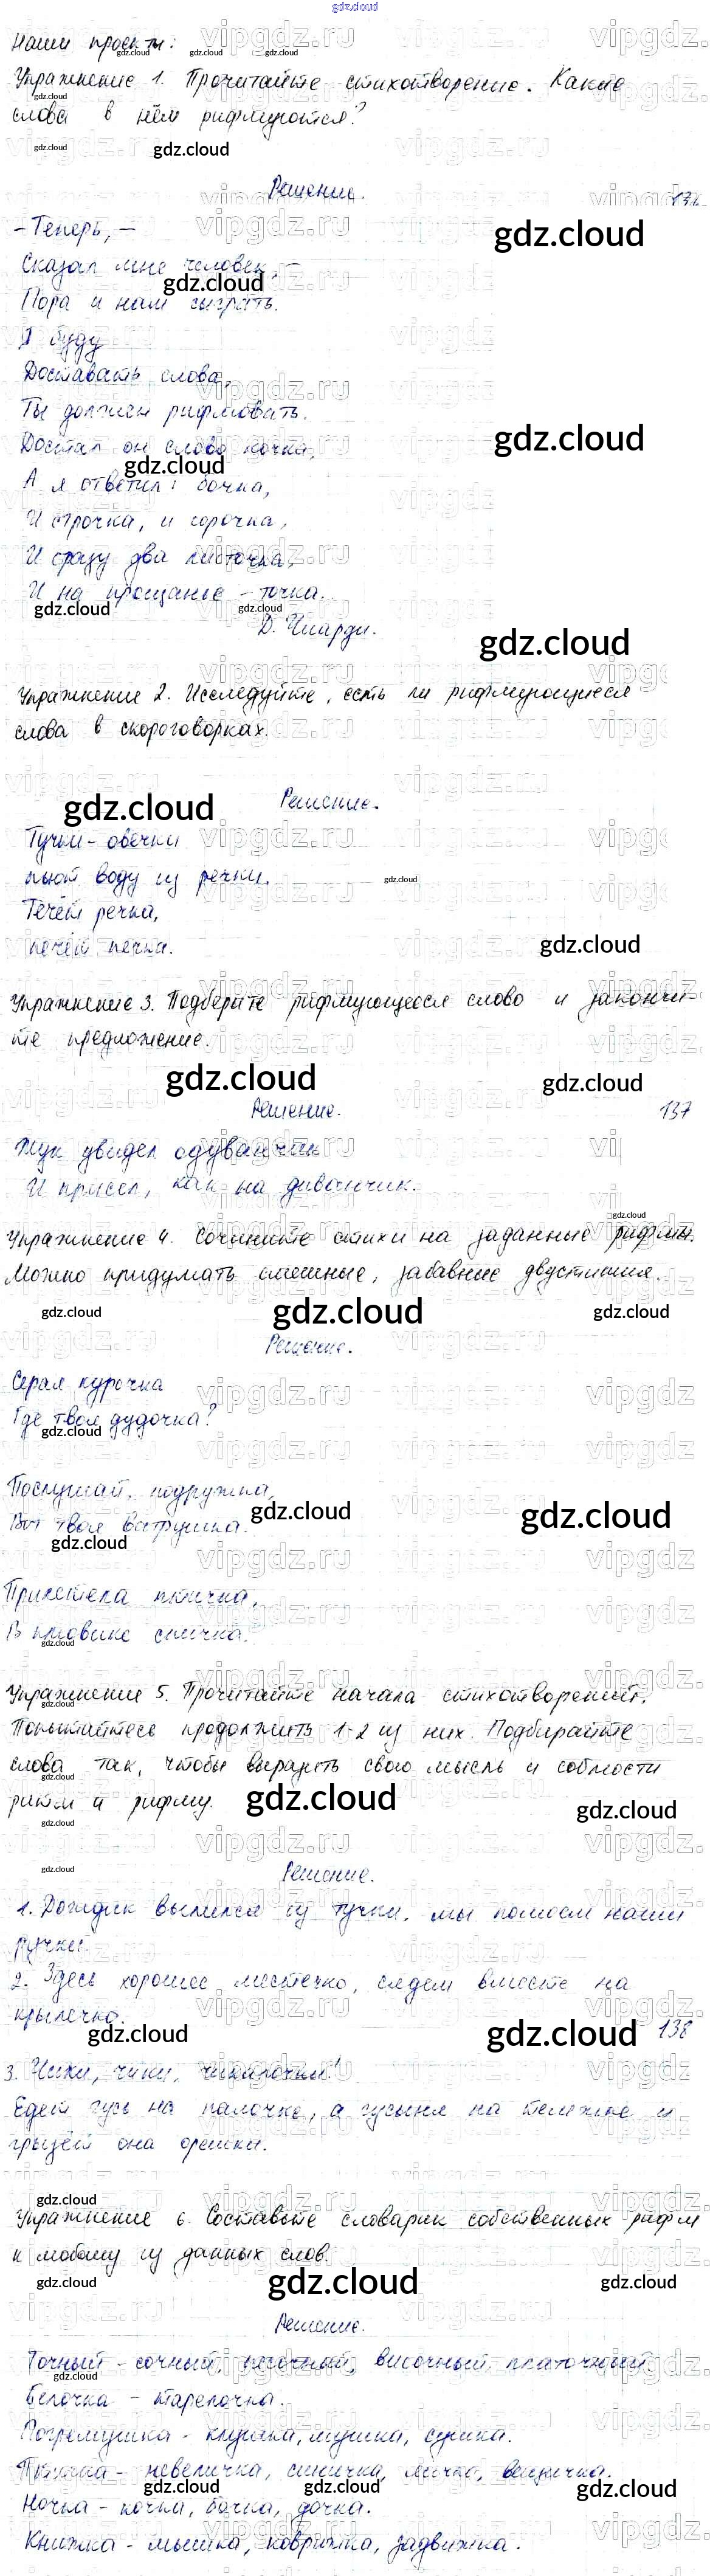 gdz.cloud
Наши проекты:
Упражнение 1. Прочитайте стихотворение. Какие
слова в нём рифмуются?
Решение.
- Теперь, -
Сказал мне человек, -
Пора и нам сыграть.
Я буду
Доставать слова,
Ты должен рифмовать.
Достал он слово кочка,
А я ответил: бочка,
И строчка, и сорочка,
И сразу два листочка,
И на прощанье - точка.
Д. Чиарди.
Упражнение 2. Исследуйте, есть ли рифмующиеся
слова в скороговорках.
Решение.
Тучки - овечки
пьют воду из речки.
Течёт речка,
печёт печка.
Упражнение 3. Подберите рифмующееся слово и закончи-
те предложение.
Решение.
137
Жук увидел одуванчик
И присел, как на диванчик.
Упражнение 4. Сочините стихи на заданные рифмы.
Можно придумать смешные, забавные двустишия.
Решение.
Серая курочка
Где твоя дудочка?
Послушай, подружка,
Вот твоя ватрушка.
Прилетела птичка,
В клювике спичка.
Упражнение 5. Прочитайте начала стихотворений.
Попытайтесь продолжить 1-2 из них. Подбирайте
слова так, чтобы выразить свою мысль и соблюсти
ритм и рифму.
Решение.
1. Дождик вылился из тучки, мы помоем наши
ручки.
2. Здесь хорошее местечко, сядем вместе на
крылечко.
138
3. Чики, чики, чикалочки!
Едет гусь на палочке, а гусыня на тележке и
грызёт она орешки.
Упражнение 6. Составьте словарик собственных рифм
к любому из данных слов.
Решение.
Точный - сочный, песочный, височный, платочный.
Белочка - тарелочка.
Погремушка - клушка, мушка, сушка.
Птичка - невеличка, синичка, личко, вещичка.
Ночка - кочка, бочка, дочка.
Книжка - мышка, коврижка, задвижка.